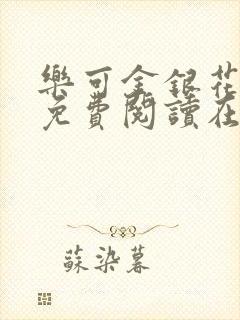 樂可金銀花
免費閱讀在
蘇染暮